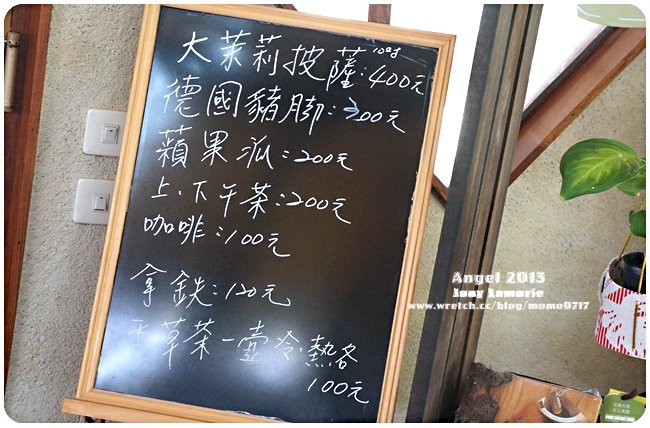 大茉莉披薩10吋:400元
德國豬脚:300元
蘋果派:200元
上、下午茶:200元
咖啡:100元
拿鉄:120元
香草茶一壺冷.熱各
100元
Angel 2013
www.wretch.cc/blog/momo0717